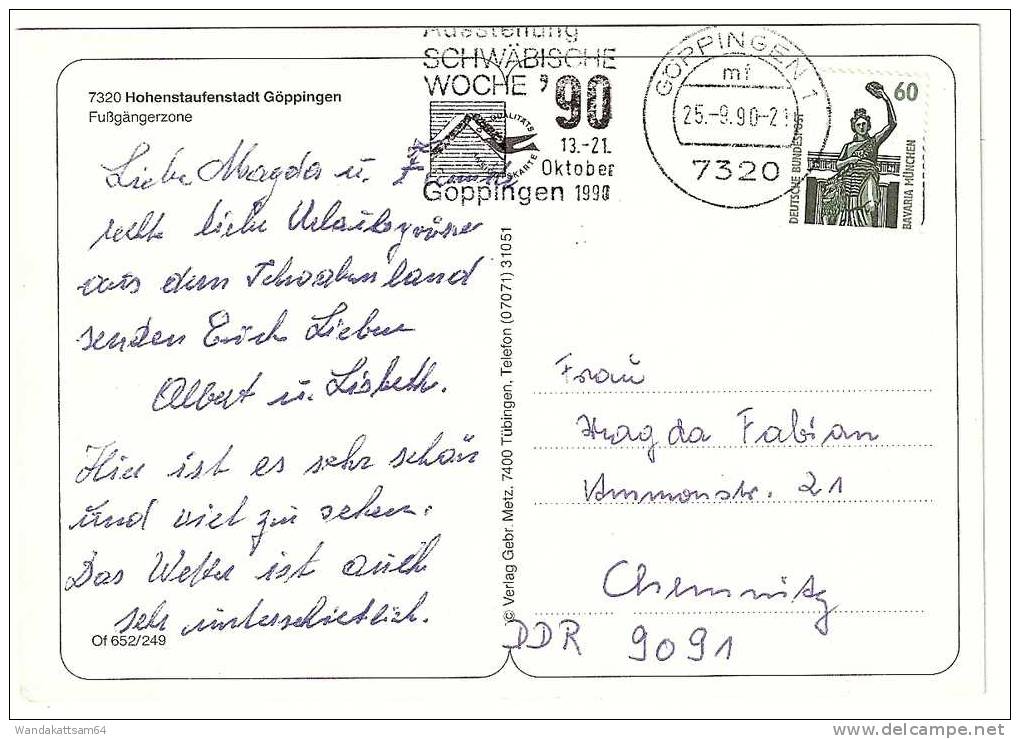 Ausstellung
SCHWÄBISCHE
WOCHE '90
QUALITÄTS
KARTE
13.-21.
Oktober
Göppingen 1990
GÖPPINGEN 1
mf
25.-9.90-21
7320
60
DEUTSCHE BUNDESPOST
BAVARIA MÜNCHEN
7320 Hohenstaufenstadt Göppingen
Fußgängerzone
Liebe Magda u.
recht liebe Urlaubsgrüsse
aus dem Schwabenland
senden Euch Lieben
Albert u. Lisbeth.
Hier ist es sehr schön
und viel zu sehen.
Das Wetter ist auch
sehr unterschietlich.
Of 652/249
© Verlag Gebr. Metz, 7400 Tübingen, Telefon (07071) 31051
Frau
Magda Fabian
Ammonstr. 21
Chemnitz
DDR 9091
Wandakattsam64
delcampe.net